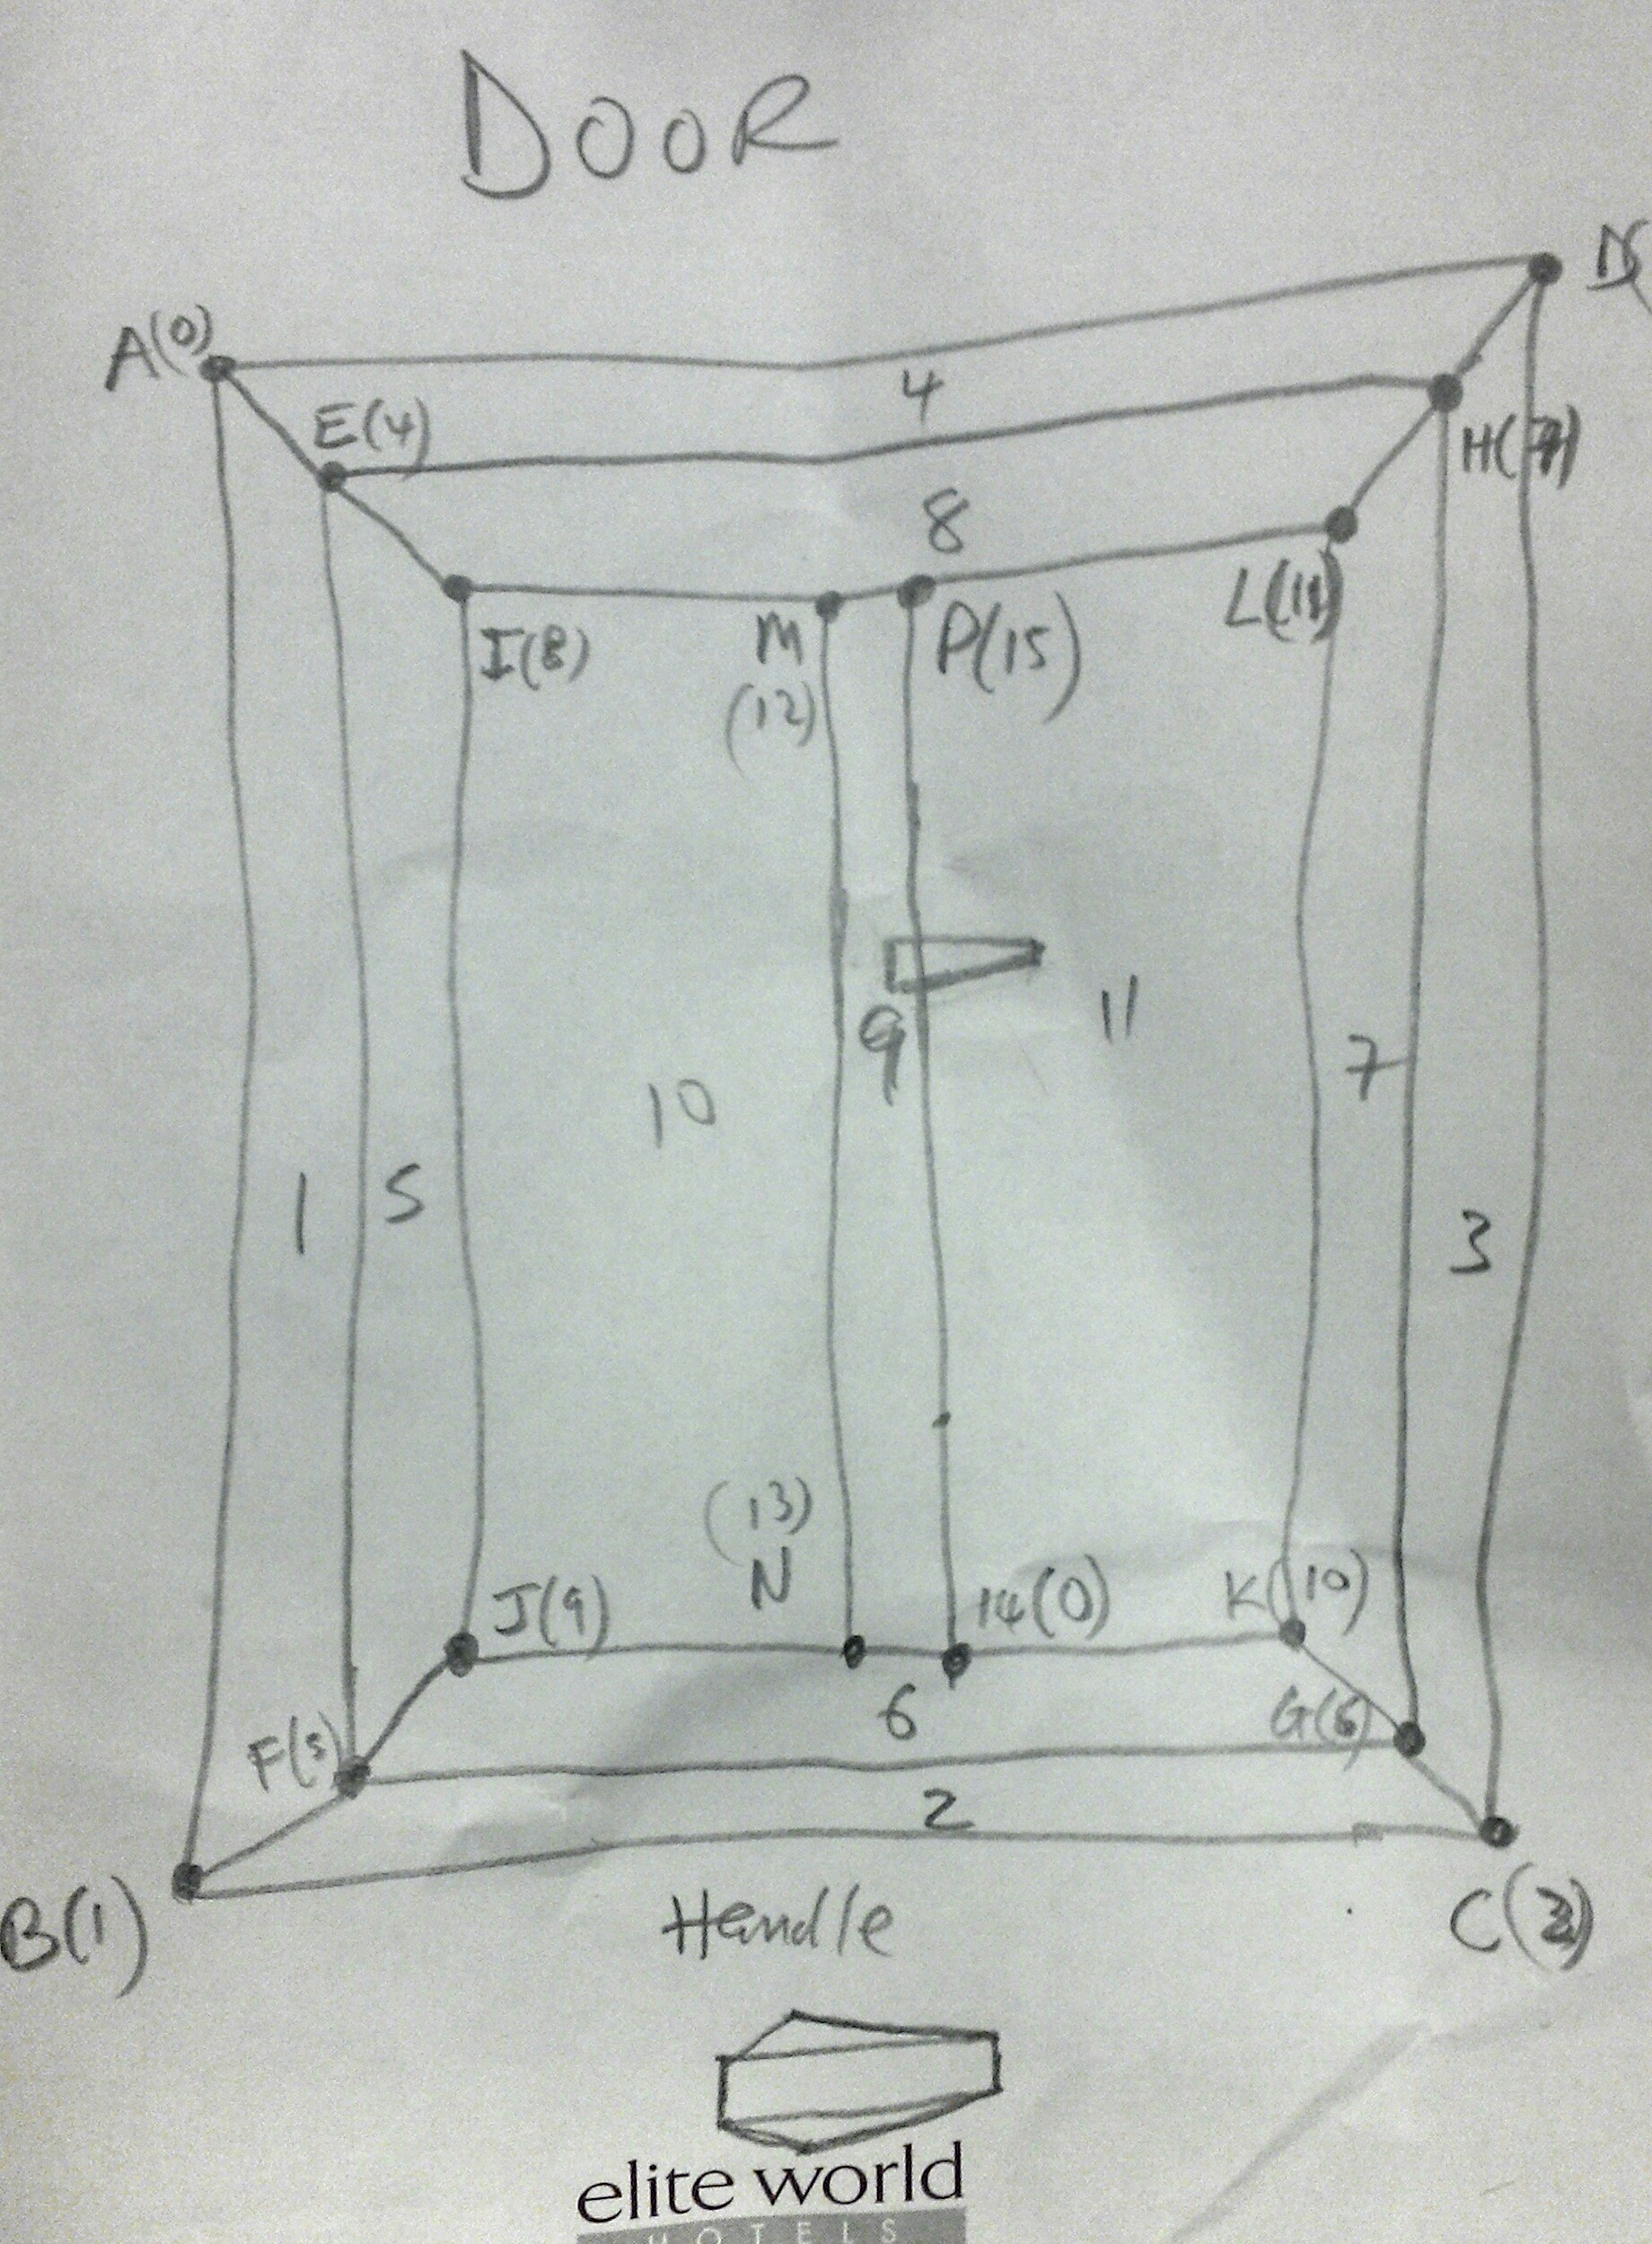 DOOR
A(0)
4
E(4)
H(7)
8
I(8)
M
P(15)
L(11)
(12)
9
11
10
7
1
5
3
(13)
N
J(9)
14(0)
K(10)
6
G(6)
F(5)
2
B(1)
Handle
C(2)
elite world
HOTELS